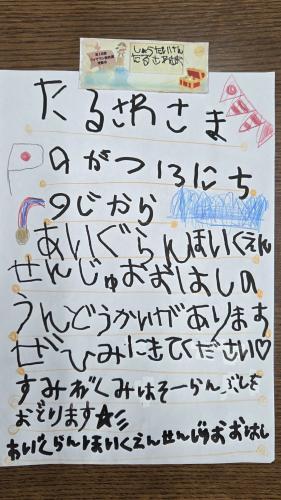 しょうたいけん
たるさわさま
たるさわさま
9がつ13にち
9じから
あいぐらんほいくえん
せんじゅおおはしの
うんどうかいがあります
ぜひみにきてください♡
すみれぐみはそーらんぶしを
おどります☆彡
あいぐらんほいくえんせんじゅおおはし